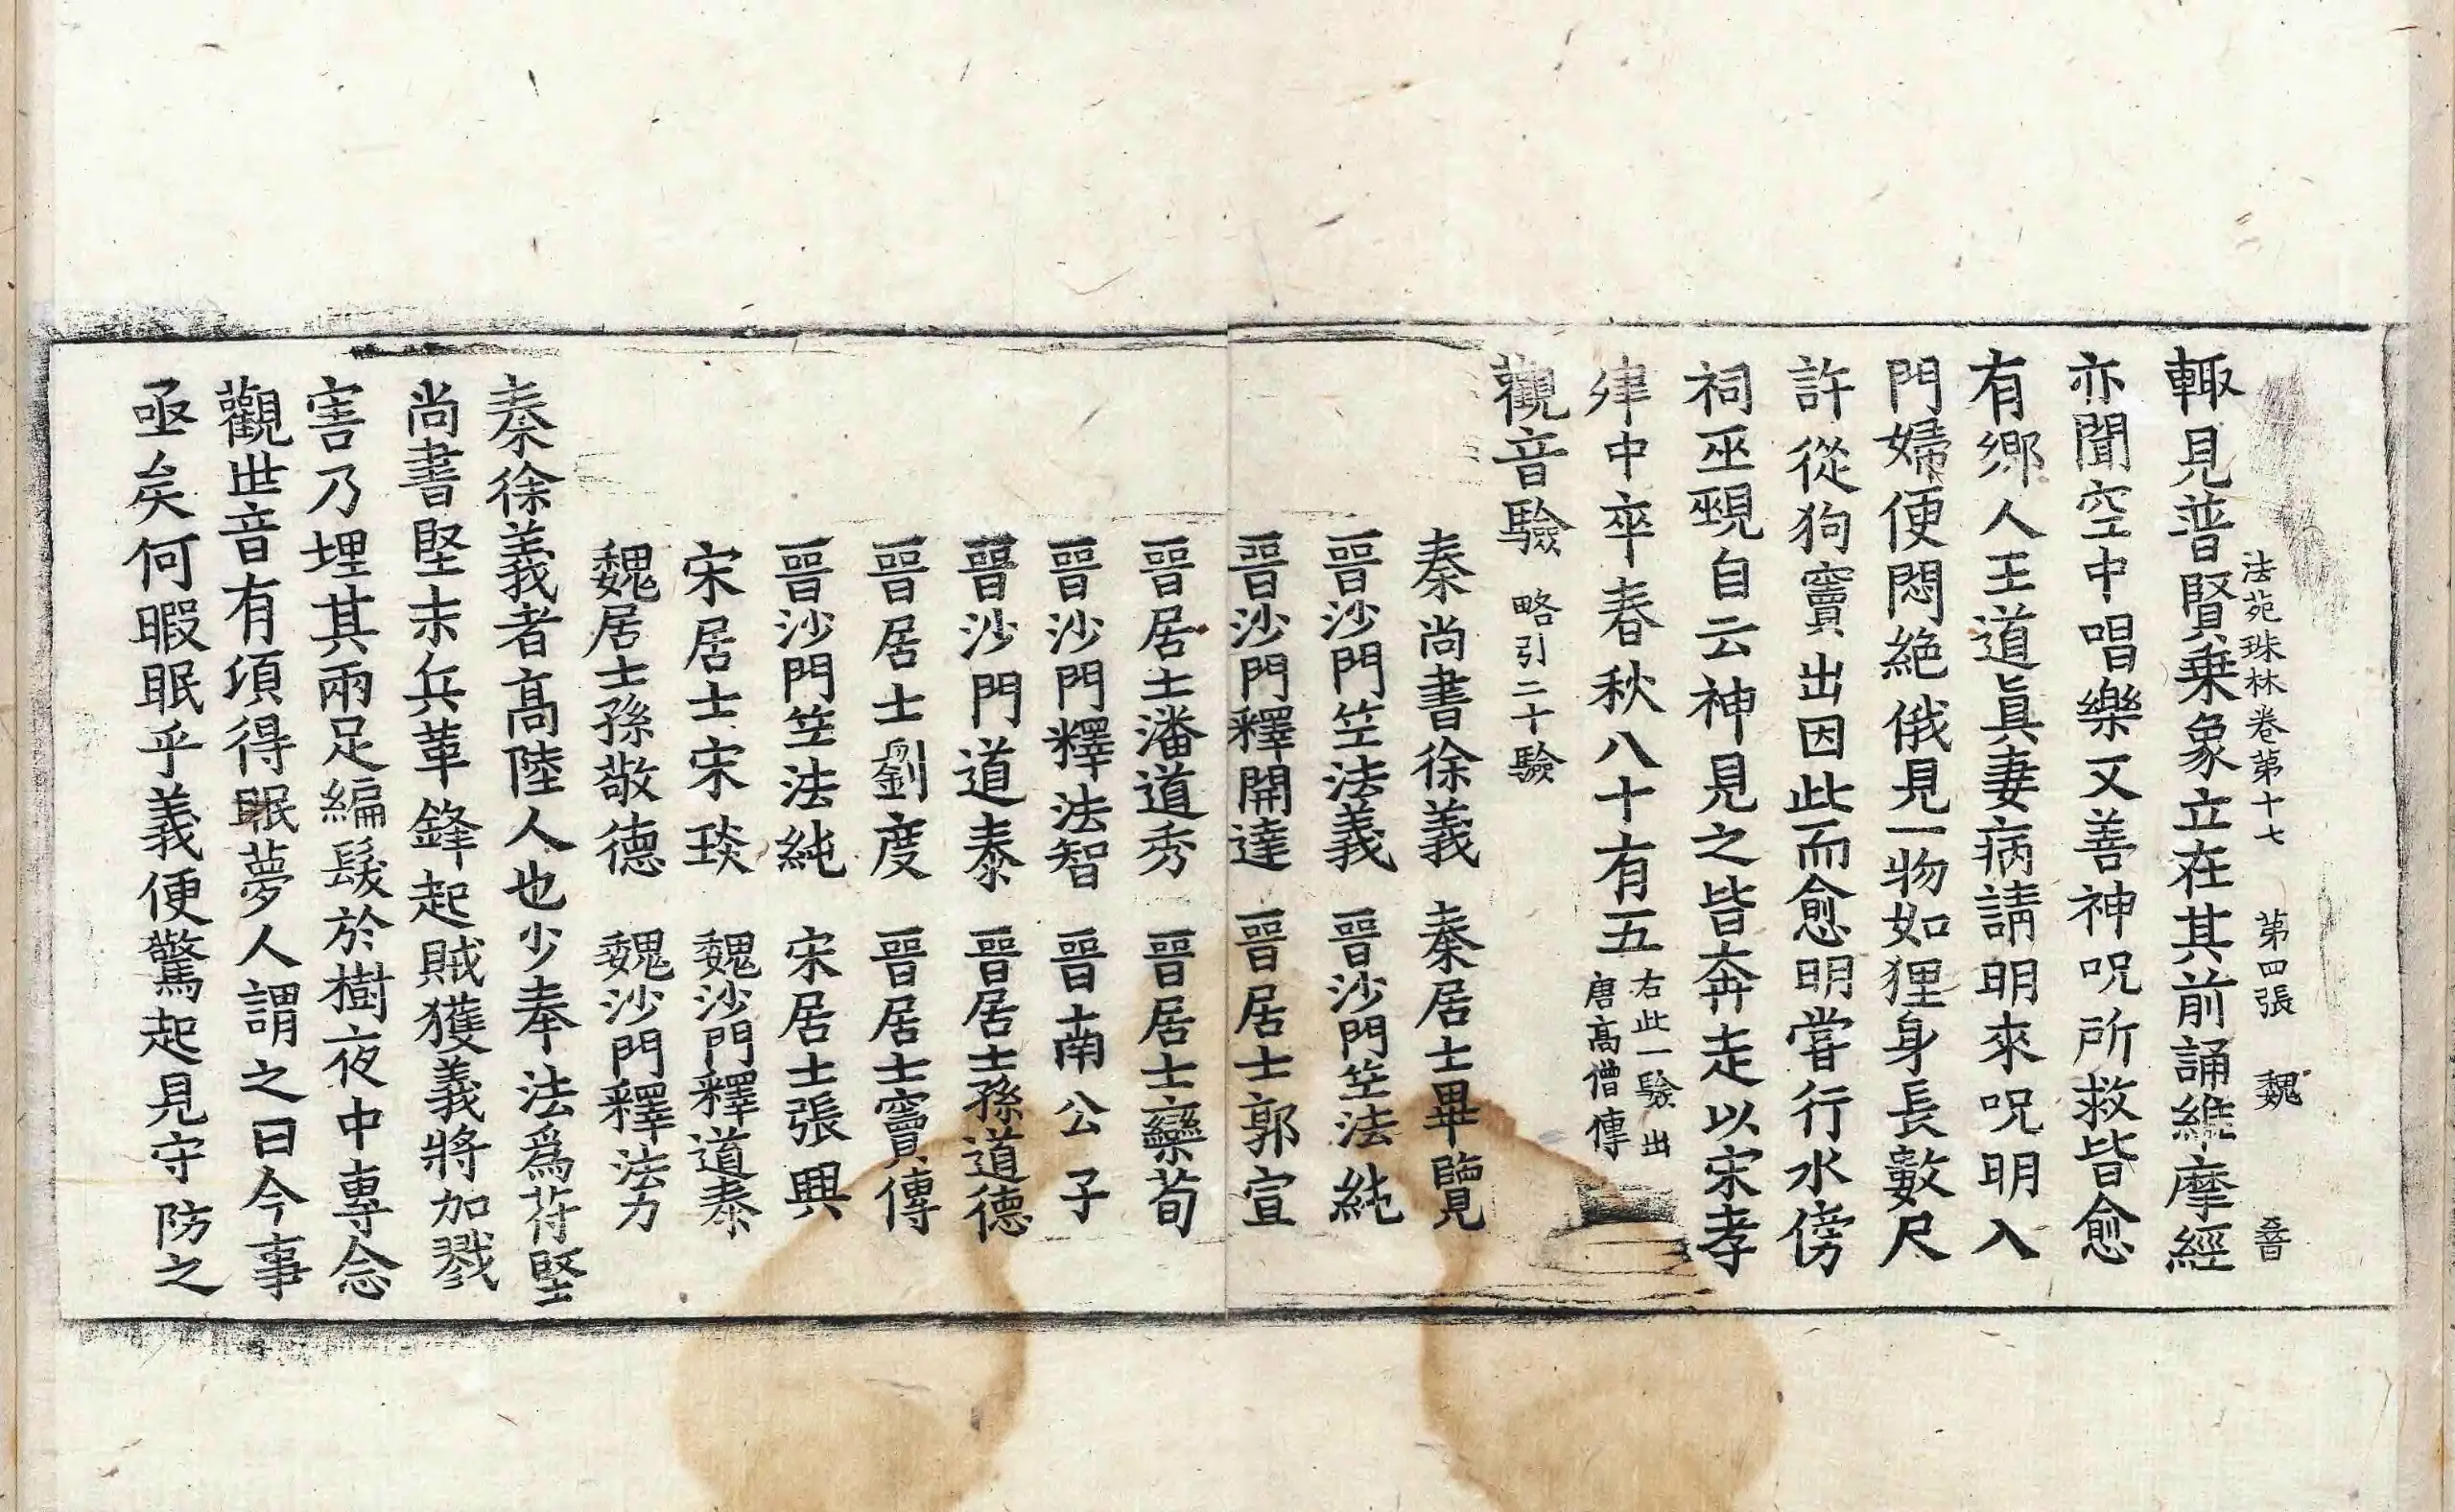 法苑珠林卷第十七 第四張 魏
輙見普賢乗象立在其前誦維摩經
亦聞空中唱樂又善神呪所救皆愈
有鄉人王道眞妻病請明來呪明入
門婦便悶絶俄見一物如狸身長數尺
許從狗竇出因此而愈明嘗行水傍
祠巫覡自云神見之皆奔走以宋孝
建中卒春秋八十有五 右此一驗出
唐高僧傳
觀音驗 略引二十驗
秦尚書徐義 秦居士畢覽
晋沙門笁法義 晋沙門笁法純
晋沙門釋開達 晋居士郭宣
晋居士潘道秀 晋居士欒荀
晋沙門釋法智 晋南公子
晋沙門道泰 晋居士孫道德
晋居士劉度 晋居士竇傳
晋沙門笁法純 宋居士張興
宋居士宋琰 魏沙門釋道泰
魏居士孫敬德 魏沙門釋法力
秦徐義者高陸人也少奉法爲苻堅
尚書堅末兵革鋒起賊獲義將加戮
害乃埋其兩足編髮於樹夜中專念
觀世音有頃得眠夢人謂之曰今事
亟矣何暇眠乎義便驚起見守防之